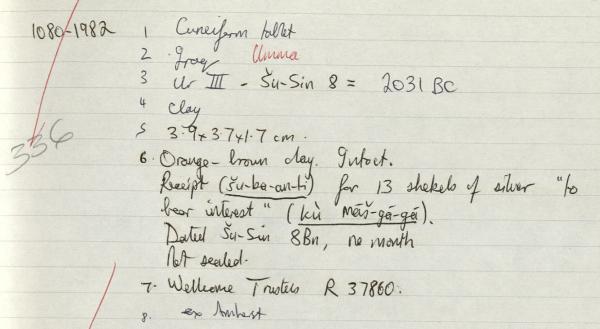 1080-1982 1 Cuneiform tablet
2 Iraq Umma
3 Ur III - Šu-Sin 8 = 2031 BC
4 Clay
336
5 3.9 x 3.7 x 1.7 cm.
6. Orange-brown clay. Intact.
Receipt (šu-ba-an-ti) for 13 shekels of silver "to
bear interest" (kù máš-gá-gá).
Dated Šu-Sin 8Bn, no month
Not sealed.
7. Wellcome Trustees R 37860.
8. ex Amherst